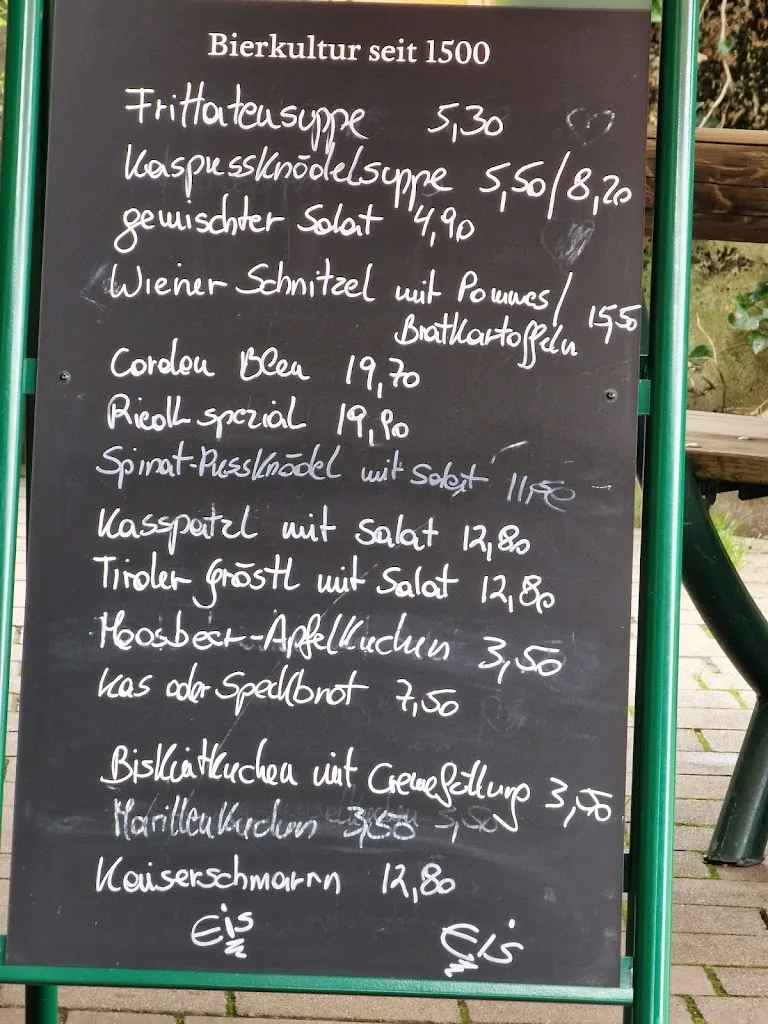 Bierkultur seit 1500
Frittatensuppe 5,30
Kaspressknödelsuppe 5,50/8,20
gemischter Salat 4,90
Wiener Schnitzel mit Pommes/ 15,50
Bratkartoffeln
Cordon Bleu 19,70
spezial 19,90
Spinat-Pressknödel mit Salat
Kasspatzl mit Salat 12,80
Tiroler Gröstl mit Salat 12,80
Moosbeer-Apfelkuchen 3,50
Kas oder Speckbrot 7,50
Biskuitkuchen mit Cremefüllung 3,50
Marillenkuchen 3,50
Kaiserschmarrn 12,80
Eis Eis